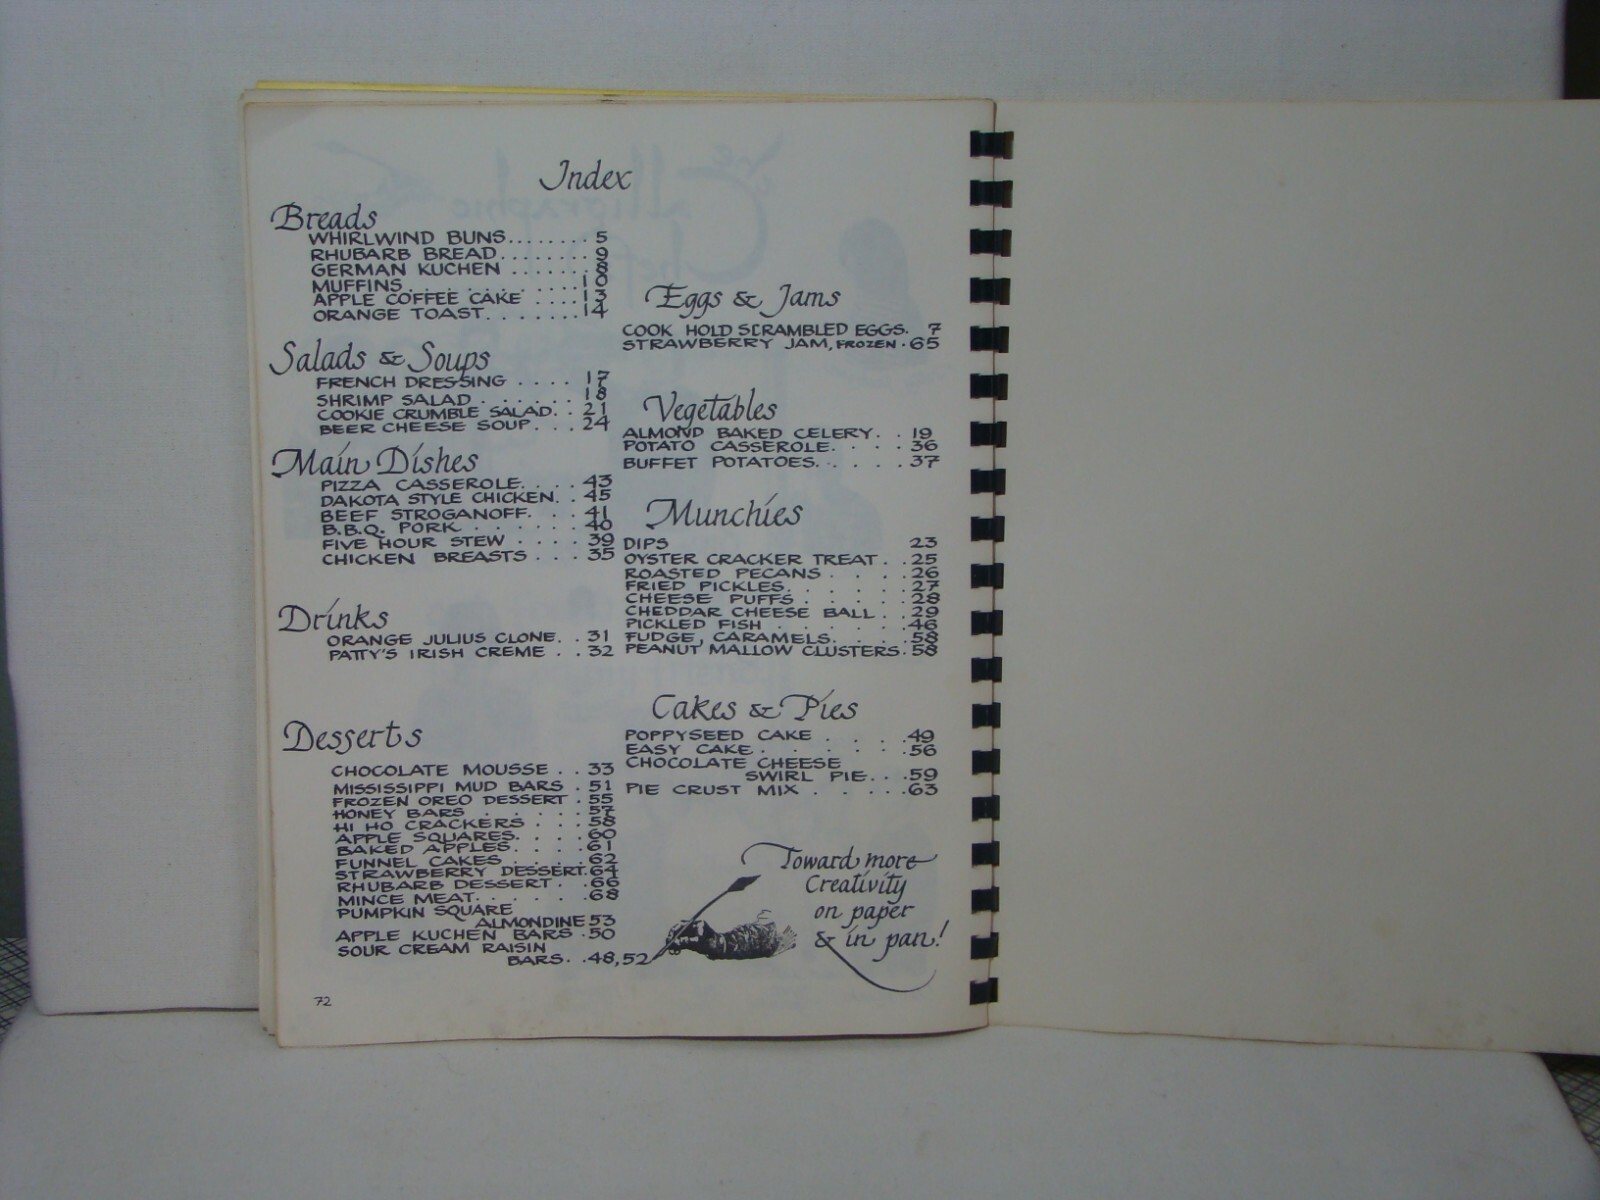 Index
Breads
WHIRLWIND BUNS........ 5
RHUBARB BREAD........ 9
GERMAN KUCHEN ....... 8
MUFFINS............ 10
APPLE COFFEE CAKE .... 13
ORANGE TOAST....... 14
Salads & Soups
FRENCH DRESSING .... 17
SHRIMP SALAD ...... 18
COOKIE CRUMBLE SALAD.. 21
BEER CHEESE SOUP... 24
Main Dishes
PIZZA CASSEROLE.... 43
DAKOTA STYLE CHICKEN.. 45
BEEF STROGANOFF... 41
B.B.Q. PORK ...... 40
FIVE HOUR STEW .... 39
CHICKEN BREASTS ... 35
Drinks
ORANGE JULIUS CLONE.. 31
PATTY'S IRISH CREME .. 32
Desserts
CHOCOLATE MOUSSE .. 33
MISSISSIPPI MUD BARS . 51
FROZEN OREO DESSERT . 55
HONEY BARS ..... 57
HI HO CRACKERS .... 58
APPLE SQUARES.... 60
BAKED APPLES.... 61
FUNNEL CAKES .... 62
STRAWBERRY DESSERT. 64
RHUBARB DESSERT .. 66
MINCE MEAT..... 68
PUMPKIN SQUARE
ALMONDINE 53
APPLE KUCHEN BARS . 50
SOUR CREAM RAISIN
BARS.. .48,52
72
Eggs & Jams
COOK HOLD SCRAMBLED EGGS. 7
STRAWBERRY JAM, FROZEN . 65
Vegetables
ALMOND BAKED CELERY. . 19
POTATO CASSEROLE.... 36
BUFFET POTATOES..... 37
Munchies
DIPS 23
OYSTER CRACKER TREAT .. 25
ROASTED PECANS .... 26
FRIED PICKLES...... 27
CHEESE PUFFS ..... 28
CHEDDAR CHEESE BALL .. 29
PICKLED FISH ...... 46
FUDGE, CARAMELS.... 58
PEANUT MALLOW CLUSTERS. 58
Cakes & Pies
POPPYSEED CAKE .... 49
EASY CAKE...... 56
CHOCOLATE CHEESE
SWIRL PIE... 59
PIE CRUST MIX ...... 63
Toward more
Creativity
on paper
& in pan!